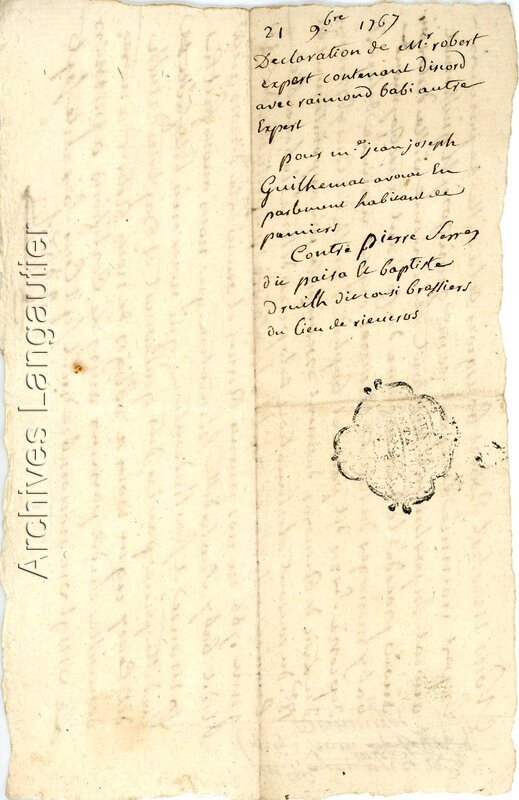 21 9bre 1767
Declaration de Mr robert
expert contenant discord
avec raimond babi autre
Expert
pour me jean joseph
Guilhemat avocat En
parlement habitant de
pamiers
Contre pierre Serres
dit paisa Et baptiste
druilh dit cousi brassiers
du lieu de rieucros
Archives Langautier